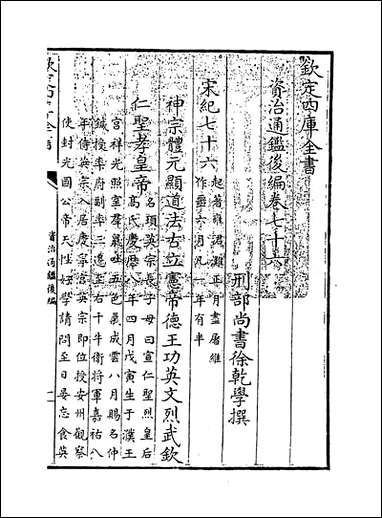 欽定四庫全書
資治通鑑後編卷七十六
刑部尚書徐乾學撰
宋紀七十六
起著雍涒灘正月盡屠維
作噩六月凡一年有半
神宗體元顯道法古立憲帝德王功英文烈武欽
仁聖孝皇帝
名頊英宗長子母曰宣仁聖烈皇后
高氏慶曆八年四月戊寅生于濮王
宮祥光照室群鼠吐五色氣成雲八月賜名仲
鍼授率府副率三遷至右千牛衛將軍嘉祐八
年侍英宗入居慶寧宮英宗即位授安州觀察
使封光國公帝天性好學請問至日晏忘食英
資治通鑑後編